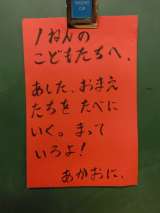 1ねんの
こどもたちへ、
あした、おまえ
たちを たべに
いく。まって
いろよ!
あかおに、